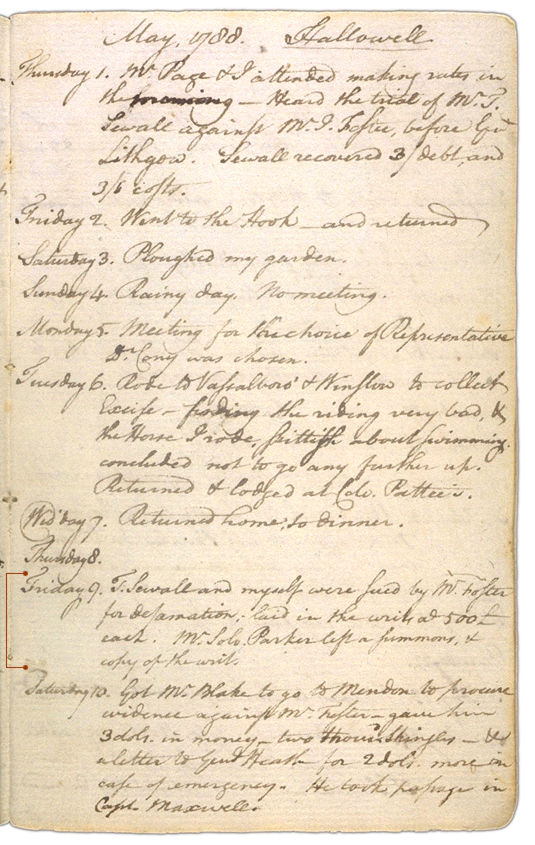 May, 1788. Hallowell
Thursday 1. Mr. Page & I attended making rates in
the forenoon — Heard the trial of Mr. T.
Sewall against Mr. I. Foster, before Genl.
Lithgow. Sewall recovered 3/ debt, and
3/6 costs.
Friday 2. Went to the Hook — and returned
Saturday 3. Ploughed my garden.
Sunday 4. Rainy day. No meeting.
Monday 5. Meeting for the choice of Representative
Dr. Cony was chosen.
Tuesday 6. Rode to Vassalboro' & Winslow to collect
Excise — finding the riding very bad, &
the Horse I rode, skittish about swimming.
concluded not to go any further up.
Returned & lodged at Colo. Pattee's.
Wed'day 7. Returned home, to dinner.
Thursday 8.
Friday 9. T. Sewall and myself were sued by Mr. Foster
for defamation; laid in the writs at 500£
each. Mr. Solo. Parker left a summons, &
copy of the writ.
Saturday 10. Got Mr. Blake to go to Mendon to procure
evidence against Mr. Foster — gave him
3 dols. in money — two thous'd Shingles — & a
a letter to Genl. Heath for 2 dols. more in
case of emergency. He took passage in
Capt. Maxwell.